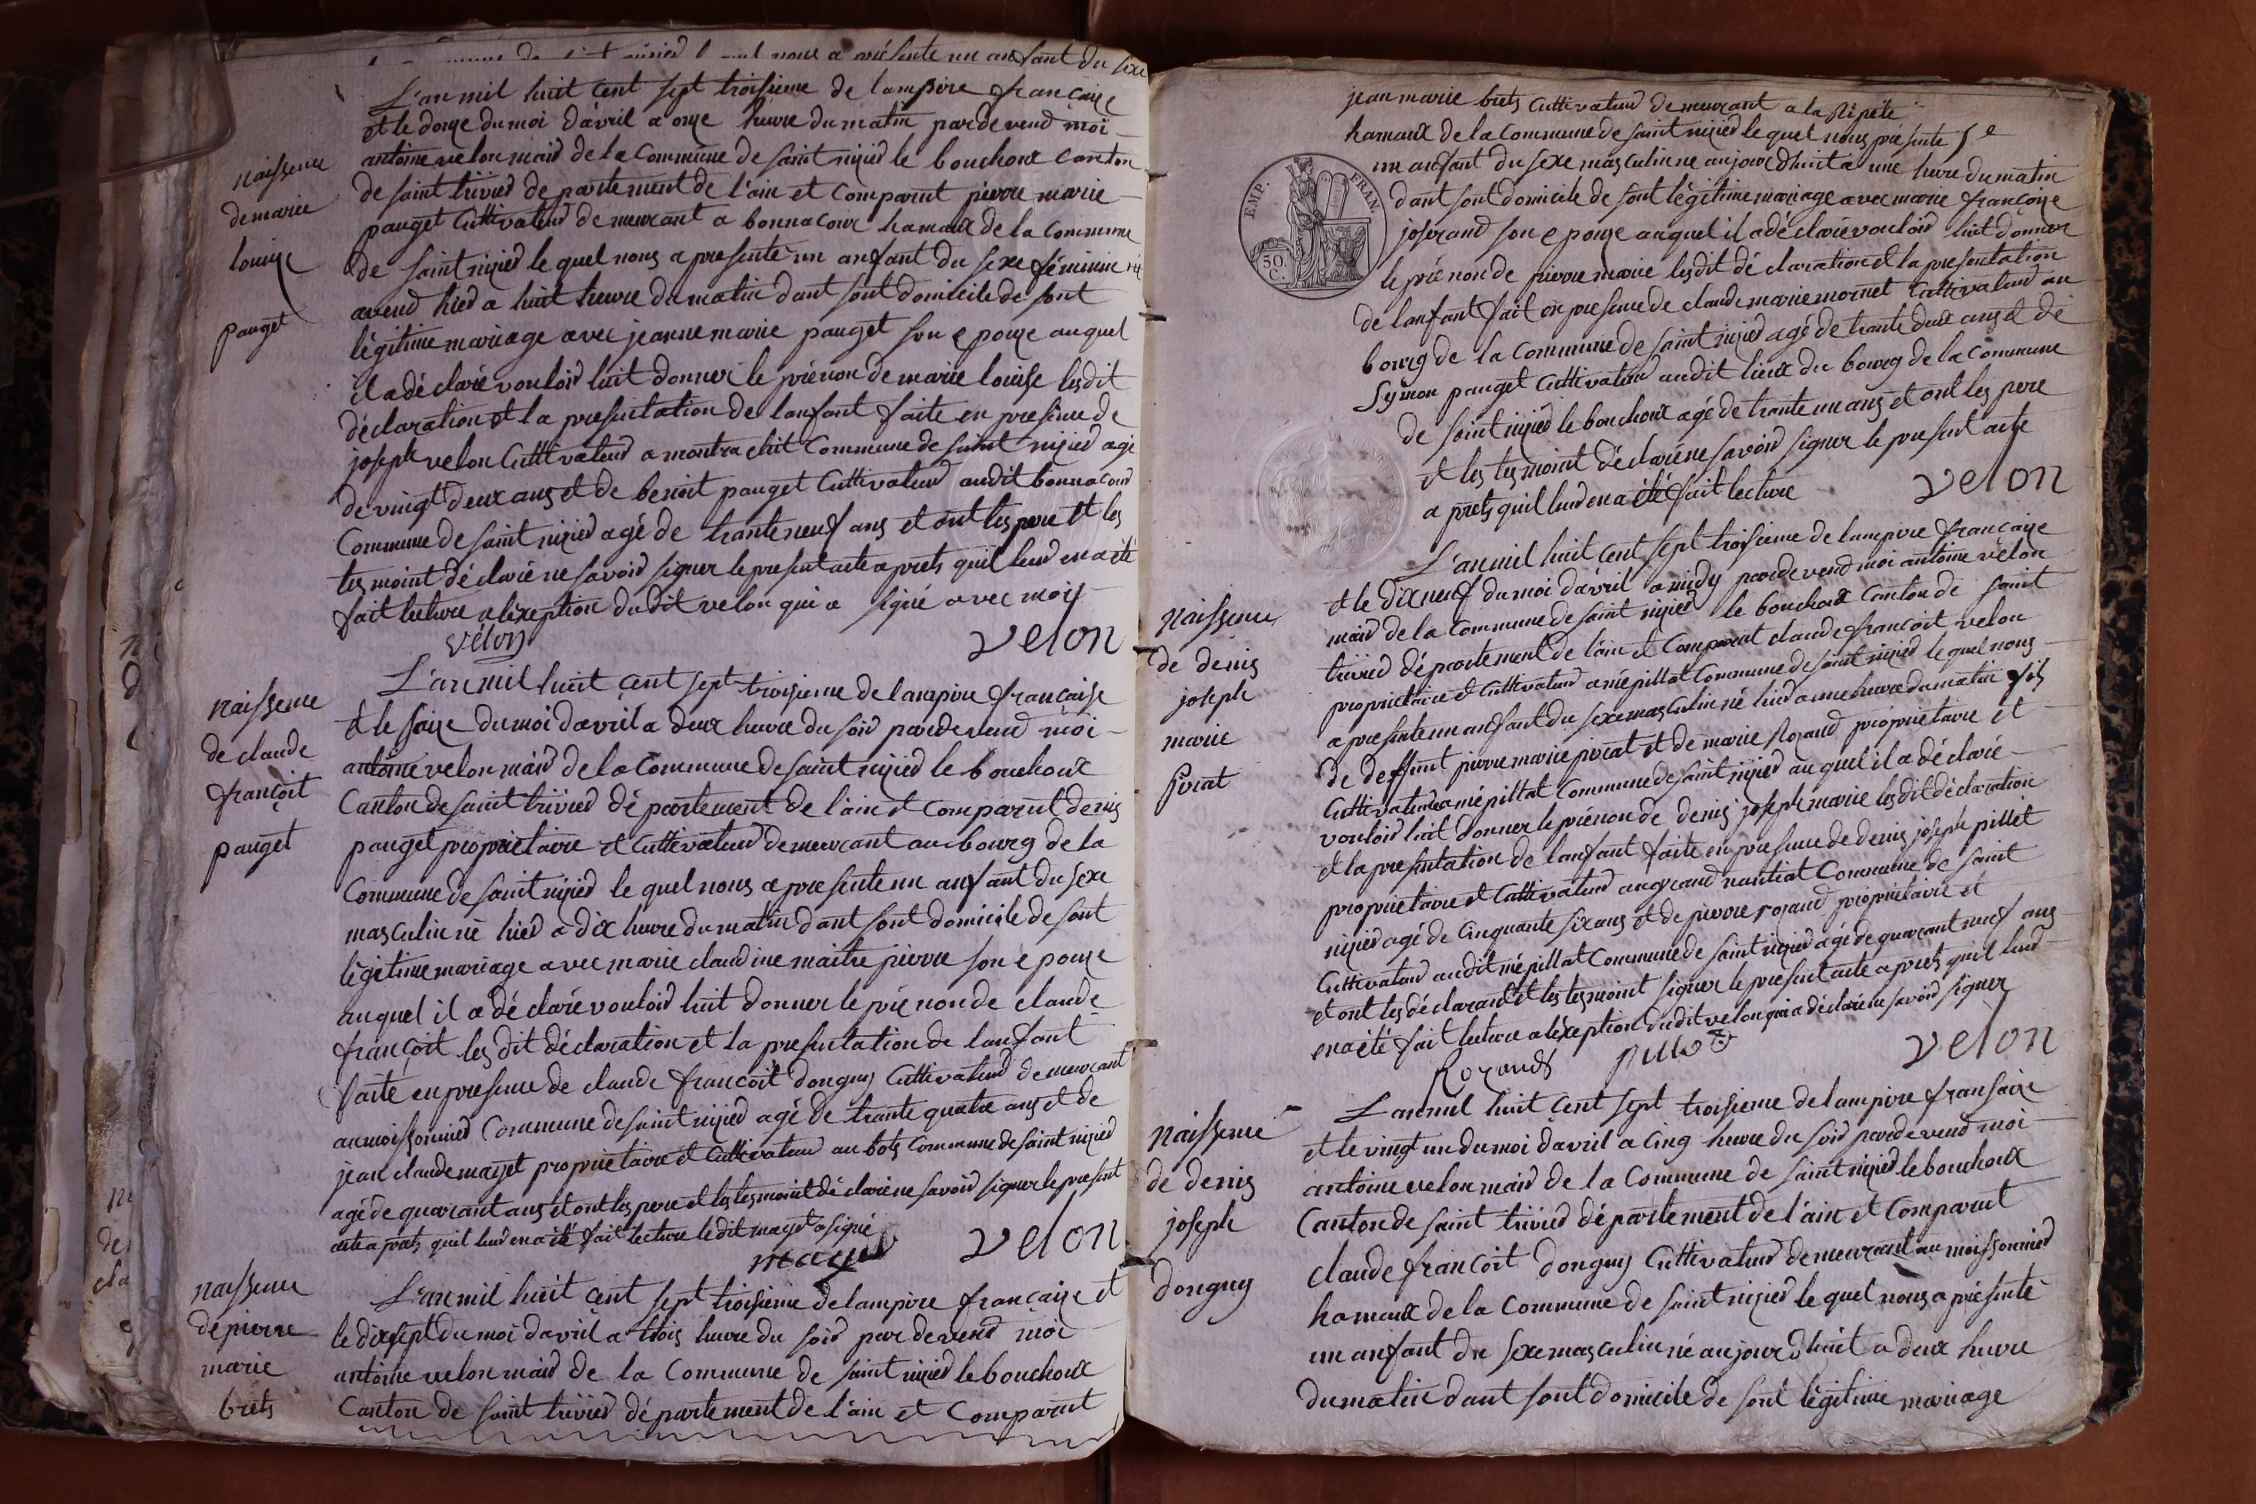 nous a présente un anfant du sexe
L'an mil huit cent sept troisieme de lampire française
et le donze du moi d'avril a onze heure du matin pardevend moi
antoine velon maid de la commune de saint nizied le bouchoux canton
de saint trivied departement de l'ain et comparut pierre marie
pauget cultivateud demeurant a bonnacour hamaux de la commune
de saint nizied le quel nous a presenté un anfant du sexe féminin né
avend hied a huit heure du matin dant sont domicile de sont
légitime mariage avec jeanne marie pauget son epouze auquel
il a déclaré vouloid luit donner le prénon de marie louise lesdit
déclaration et la presentation de lanfant faite en presence de
joseph velon cultivateud a montrachit commune de saint nizied agé
de vingt deux ans et de benoit pauget cultivateud audit bonnacoud
commune de saint nizied agé de trante neuf ans et ont les pere et les
tesmoint déclaré ne savoid signer le present acte aprets quil leud en a été
fait lecture a lexeption dudit velon qui a signé avec moy
velon
velon
naissence
de marie
louize
pauget
L'an mil huit cent sept troisieme de lampire française
et le saize du moi davril a deux heure du soid pardevend moi
antoine velon maid de la commune de saint nizied le bouchoux
canton de saint trivied département de l'ain et comparut denis
pauget proprietaire et cultivateud demeurant au bourg de la
commune de saint nizied le quel nous a presente un anfant du sexe
masculin né hied a dix heure du matin dant sont domicile de sont
légitime mariage avec marie claudine maitre pierre son epouze
auquel il a déclaré vouloid luit donner le prénon de claude
françoit les dit déclaration et la presentation de lanfant
faite en presence de claude françoit donguy cultivateud demeurant
au moissonnied commune de saint nizied agé de trante quatre ans et de
jean claude mazet proprietaire et cultivateud au bots commune de saint nizied
agé de quarant ans et ont les pere et les tesmoint déclaré ne savoid signer le present
acte aprets quil leud en a été fait lecture ledit mazet a signé
velon
naissence
de claude
françoit
pauget
L'an mil huit cent sept troisieme de lampire française et
le dixsept du moi davril a trois heure du soid pardevend moi
antoine velon maid de la commune de saint nizied le bouchoux
canton de saint trivied département de l'ain et comparut
naissence
de pierre
marie
brets
jean marie brets cultivateud demeurant a la Ripéte
hamaux de la commune de saint nizied le quel nous présente
un anfant du sexe masculin né aujourdhuit a une heure du matin
dant sont domicile de sont légitime mariage avec marie françoise
joserand son epouze auquel il a déclaré vouloid luit donner
le prénon de pierre marie lesdit déclaration et la presentation
de lanfant fait en presence de claude marie mornet cultivateud au
bourg de la commune de saint nizied agé de trante deux ans et de
Symon pauget cultivateud audit lieux du bourg de la commune
de saint nizied le bouchoux agé de trante un ans et ont les pere
et les tesmoint déclaré ne savoid signer le present acte
aprets quil leud en a été fait lecture
velon
EMP. FRAN.
50. C.
L'an mil huit cent sept troisieme de lampire française
et le dixneuf du moi davril a midy pardevend moi antoine velon
maid de la commune de saint nizied le bouchoux canton de saint
trivied département de l'ain et comparut claude françoit velon
proprietaire et cultivateud a mépillat commune de saint nizied le quel nous
a presente un anfant du sexe masculin né hied a une heure du matin fils
de deffunt pierre marie pirat et de marie Rozand proprietaire et
cultivateud a mépillat commune de saint nizied auquel il a déclaré
vouloid luit donner le prénon de denis joseph marie lesdit déclaration
et la presentation de lanfant faite en presence de denis joseph pillet
proprietaire et cultivateud au grand nantiat commune de saint
nizied agé de cinquante six ans et de pierre rozand proprietaire et
cultivateud audit mépillat commune de saint nizied agé de quarant neuf ans
et ont les déclarant et les tesmoint signer le present acte aprets quil leud
en a été fait lecture a léxeption dudit velon qui a déclaré ne savoid signer
Rozand
velon
naissence
de denis
joseph
marie
pirat
L'an mil huit cent sept troisieme de lampire fransaise
et le vingt un du moi davril a cinq heure du soid pardevend moi
antoine velon maid de la commune de saint nizied le bouchoux
canton de saint trivied département de l'ain et comparut
claude françoit donguy cultivateud demeurant au moissonnied
hamaux de la commune de saint nizied le quel nous a présenté
un anfant du sexe masculin né aujourdhuit a deux heure
du matin dant sont domicile de sont légitime mariage
naissence
de denis
joseph
donguy